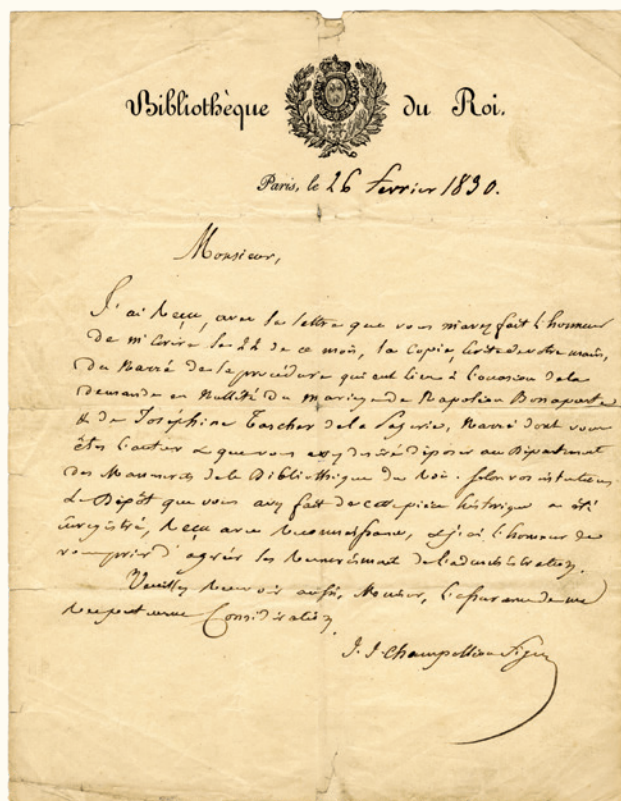 Bibliothèque du Roi.
Paris, le 26 fevrier 1830.
Monsieur,
J'ai reçu, avec la lettre que vous m'avez fait l'honneur
de m'écrire le 22 de ce mois, la copie, écrite de votre main,
du Narré de la procédure qui eut lieu à l'occasion de la
demande en Nullité du mariage de Napoléon Bonaparte
& de Joséphine Tascher de la Pagerie, Narré dont vous
êtes l'auteur & que vous avez désiré déposer au Département
des Manuscrits de la Bibliothèque du Roi. Selon vos intentions
Le Dépôt que vous avez fait de cette pièce historique a été
enregistré, reçu avec reconnaissance, & j'ai l'honneur de
vous prier d'agréer les remerciments de l'administration.
Veuillez recevoir aussi, Monsieur, l'assurance de ma
respectueuse Considération
J. J. Champollion Figeac